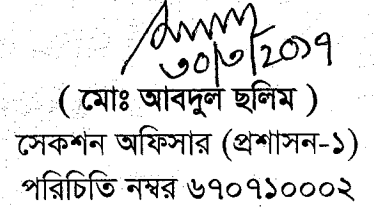 ৩০/৩/২০১৭
( মোঃ আবদুল ছলিম )
সেকশন অফিসার (প্রশাসন-১)
পরিচিতি নম্বর ৬৭০৭১০০০২